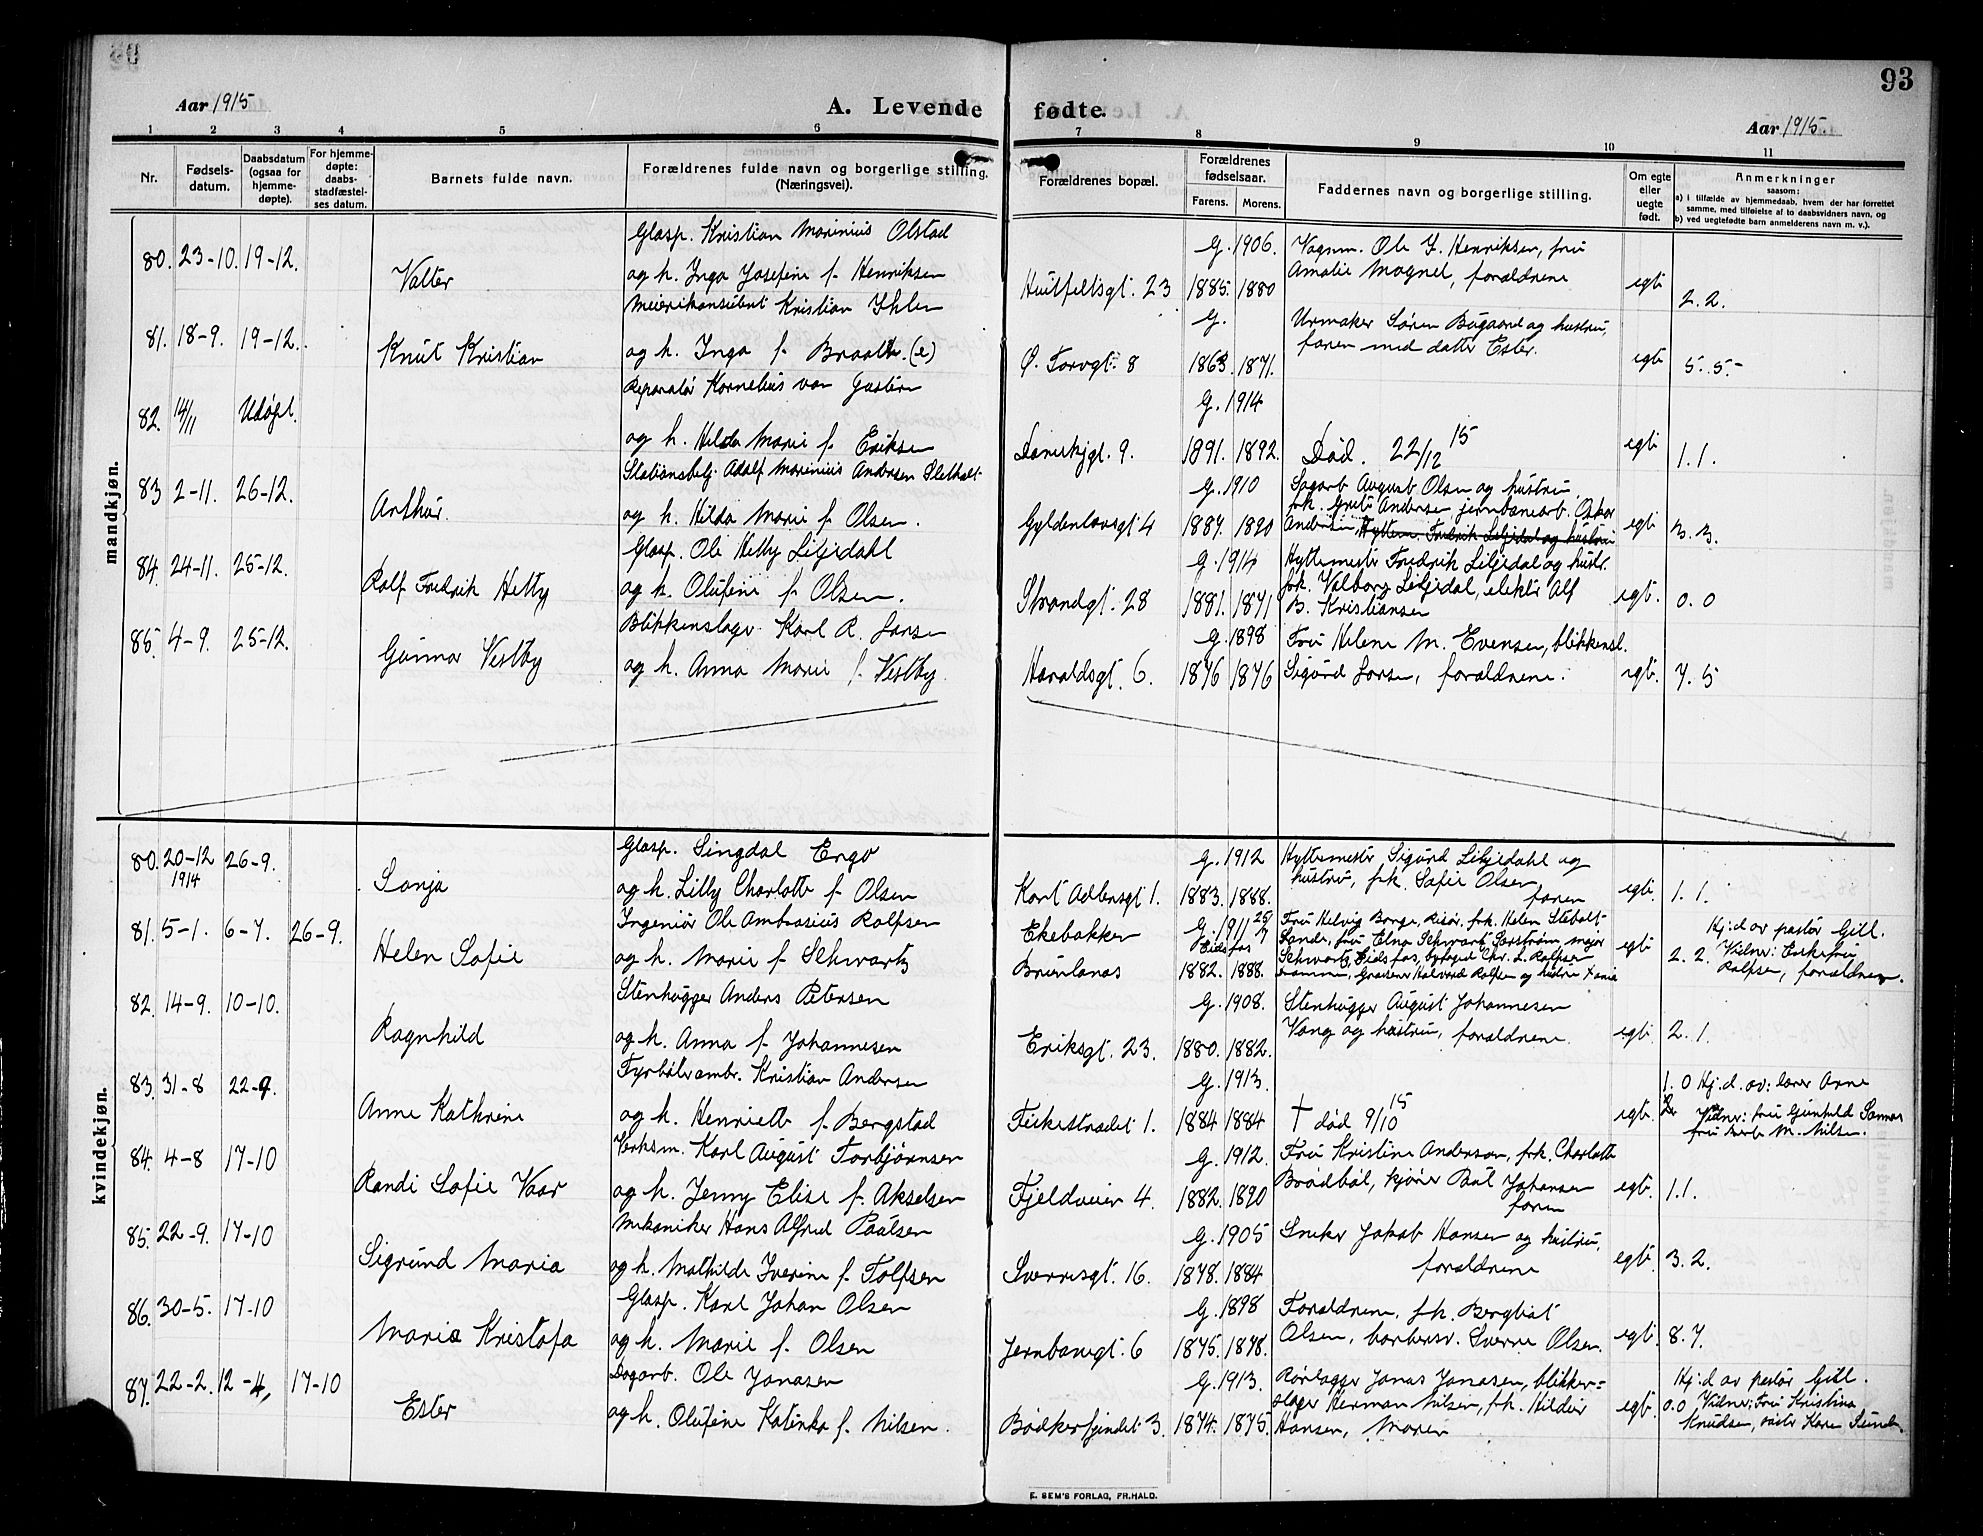 93
Aar 1915
A. Levende fødte.
Aar 1915.
1 2 3 4 5 6 7 8 9 10 11
Nr.
Fødsels-
datum.
Daabsdatum
(ogsaa for
hjemme-
døpte).
For hjemme-
døpte:
daabs-
stadfæstel-
ses datum.
Barnets fulde navn.
Forældrenes fulde navn og borgerlige stilling.
(Næringsvei).
Forældrenes bopæl.
Forældrenes
fødselsaar.
Farens. Morens.
Faddernes navn og borgerlige stilling.
Om egte
eller
uegte
født.
Anmerkninger
saasom:
a) i tilfælde av hjemmedaab, hvem der har forrettet
samme, med tilføielse af to daabsvidners navn, og
b) ved uegtefødte barn anmelderens navn m. v.).
mandkjøn.
Glasp. Kristian Marinius Olstad G. 1906. Vognm. Ole J. Henriksen, fru
80. 23-10. 19-12. Valter og h. Inga Josefine f. Henriksen Huitfeltsgt. 23 1885. 1880 Amalie Magnel, forældrene egte 2. 2.
Meierikonsulent Kristian Ihlen G. Urmaker Søren Bugaard og hustru,
81. 18-9. 19-12. Knut Kristian og h. Inga f. Braathe. (e) Ø. Torvgt. 8 1863. 1871. faren med datter Ester. egte 5. 5.-
Reparatør Kornelius van G. 1914
82. 14/11 Udøpt. og h. Hilda Marie f. Eriksen Danskjgt. 9. 1891. 1892. Død. 22/12 15 egte 1. 1.
Stationsbetj. Adolf Marinius Andersen G. 1910 Sagarb August Olsen og hustru,
83 2-11. 26-12. Arthur. og h. Hilda Marie f. Olsen. Gyldenløvsgt 4 1887. 1890 frk. Grete Andersen jernbanearb. Oskar egte 3. 3.
Andersen, Hyttem. Fredrik Liljedal og hustru
Glasp. Ole Hetty Liljedahl G. 1914 Hyttemester Fredrik Liljedal og hustr.
84. 24-11. 25-12. Rolf Fredrik Hetty og h. Olufine f. Olsen. Strandgt. 28 1881. 1871 frk. Valborg Liljedal, elektr Alf egte. 0. 0
B. Kristiansen
Blikkenslager Karl R. Larsen G. 1898 Fru Helene M. Evensen, blikkensl.
85. 4-9. 25-12. Gunnar Vestby og h. Anna Marie f. Vestby. Haraldsgt. 6. 1876 1876 Sigurd Larsen, forældrene. egte. 7. 5
kvindekjøn.
Glasp. Singdal Ergo G. 1912 Hyttemester Sigurd Liljedahl og
80. 20-12 1914 26-9. Sonja og h. Lilly Charlotte f. Olsen Kort Adlersgt 1. 1883. 1888. hustru, frk. Sofie Olsen faren egte 1. 1.
Ingeniør Ole Ambrosius Rolfsen Ekebakken G. 1911 25/7 Fru Helvig Borge, Risør, frk. Helen Hj:d av pastor Gill.
81. 5-1. 6-7. 26-9. Helen Sofie og h. Marie f. Schwartz Brunlanes Eidsfos 1882. 1888. fru Elna Schwartz major egte 2. 2. Vidner: Enkefru
Schwartz, Eidsfos, Chr. L. Rolfsen Rolfsen, forældrene.
Drammen, Halvord Rolfsen og hustru Kr.ania
Stenhugger Anders Petersen G. 1908. Stenhugger August Johannesen
82. 14-9. 10-10. Ragnhild og h. Anna f. Johannesen Eriksgt. 23. 1880. 1882. Vang og hustru, forældrene egte. 2. 1.
Fyrbøter ombr. Kristian Andersen G. 1913. 1. 0 Hj.d. av: lærer Arne
83. 31-8 22-9. Anne Kathrine og h. Henriette f. Bergstad Feiestrædet 1. 1884 1884 † død 9/10 15 egte. Vidner: fru Gunhild
fru M. Nilsen.
Verksm. Karl August Torbjørnsen G. 1912. Fru Kristine Anderson, frk. Charlotte
84. 4-8 17-10 Randi Sofie Vaar og h. Jenny Elise f. Akselsen Fjeldveien 4. 1882. 1890 Brødbøl, kjører Johansen faren egte. 1. 1.
Mekaniker Hans Alfred Paulsen G. 1905 Sneker Jakob Hansen og hustru,
85. 22-9. 17-10 Sigrund Maria og h. Mathilde Iverine f. Tolfsen Sverresgt. 16. 1878. 1884 forældrene egte. 3. 2.
Glasp. Karl Johan Olsen G. 1898 Forældrene, frk. Bergliot
86. 30-5. 17-10 Maria Kristofa og h. Marie f. Olsen Jernbanegt. 6 1875. 1878. Olsen, barbersv. Sverre Olsen. egte 8. 7.
Dagarb. Ole Jonasen G. 1913. Rørlægger Jonas Jonasen, blikken= Hj:d av pastor Gill.
87. 22-2. 12-4, 17-10 Ester og h. Olufine Katinka f. Nilsen. Bødkerfjeldet 3 1874. 1875. slager Herman Nilsen, frk. Hildur egte. 0. 0 Vidner: Fru Kristina
Hansen, Moren Knudsen, søster Karen
E. SEM'S FORLAG, FR.HALD.